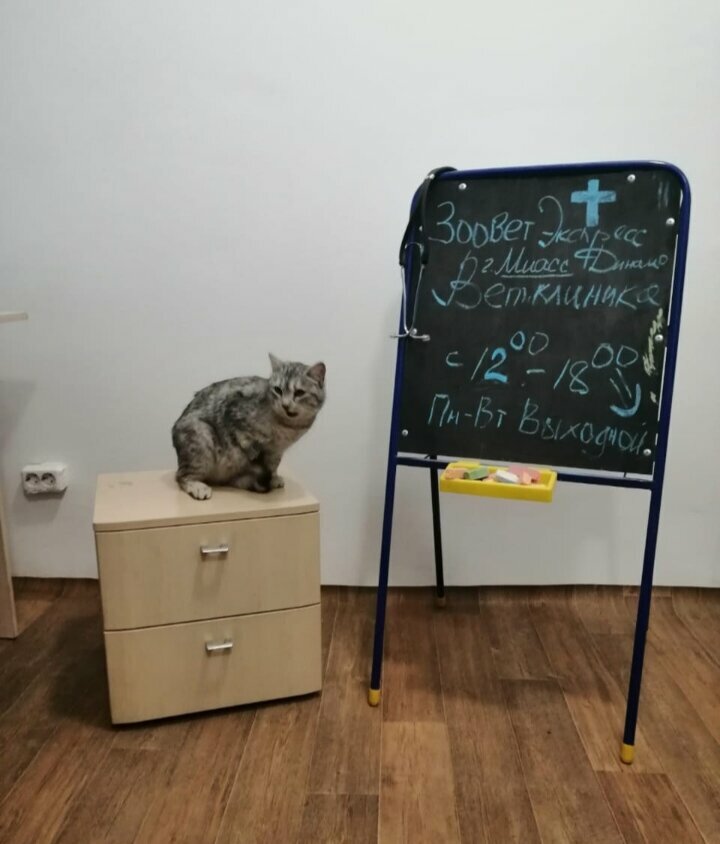 ЗооВет Экспресс
г Миасс Динамо
Ветклиника
с 12 00 - 18 00
Пн-Вт Выходной